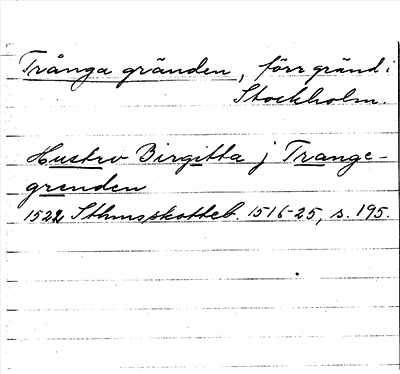 Trånga gränden, förr gränd i
Stockholm.
Hustrv Birgitta j Trange-
grenden
1522 Sthmsskotteb. 1516-25, s. 195.